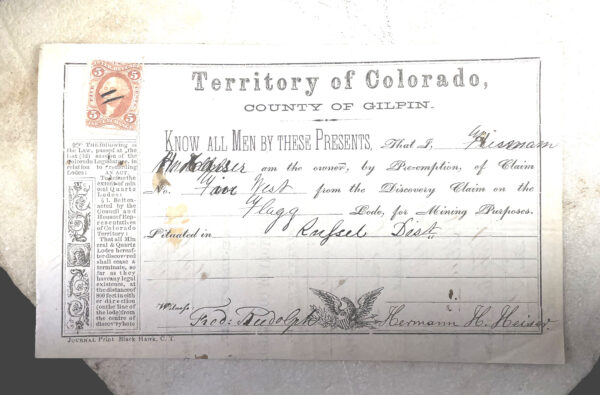 Territory of Colorado,
COUNTY OF GILPIN.
KNOW ALL MEN BY THESE PRESENTS, That I,
Heiser am the owner, by Pre-emption, of Claim
No. West from the Discovery Claim on the
Flagg Lode, for Mining Purposes.
Situated in Russel Dist.
Witness: Fred: Rudolph Hermann H. Heiser
JOURNAL Print Black Hawk, C. T.
5 5
The following is
the Law, passed at the
last (3d) session of the
Colorado Legislature, in
relation to recording
Lodes: AN ACT
To define the
extent of min
eral Quartz
Lodes:
§ 1. Be it en-
acted by the
Council and
House of Rep-
resentatives
of Colorado
Territory:
That all Min
eral & Quartz
Lodes hereaf-
ter discovered
shall cease &
terminate, so
far as they
have any legal
existence, at
the distance of
800 feet in eith
er direction
(on the line of
the lode) from
the centre of
discovery hole